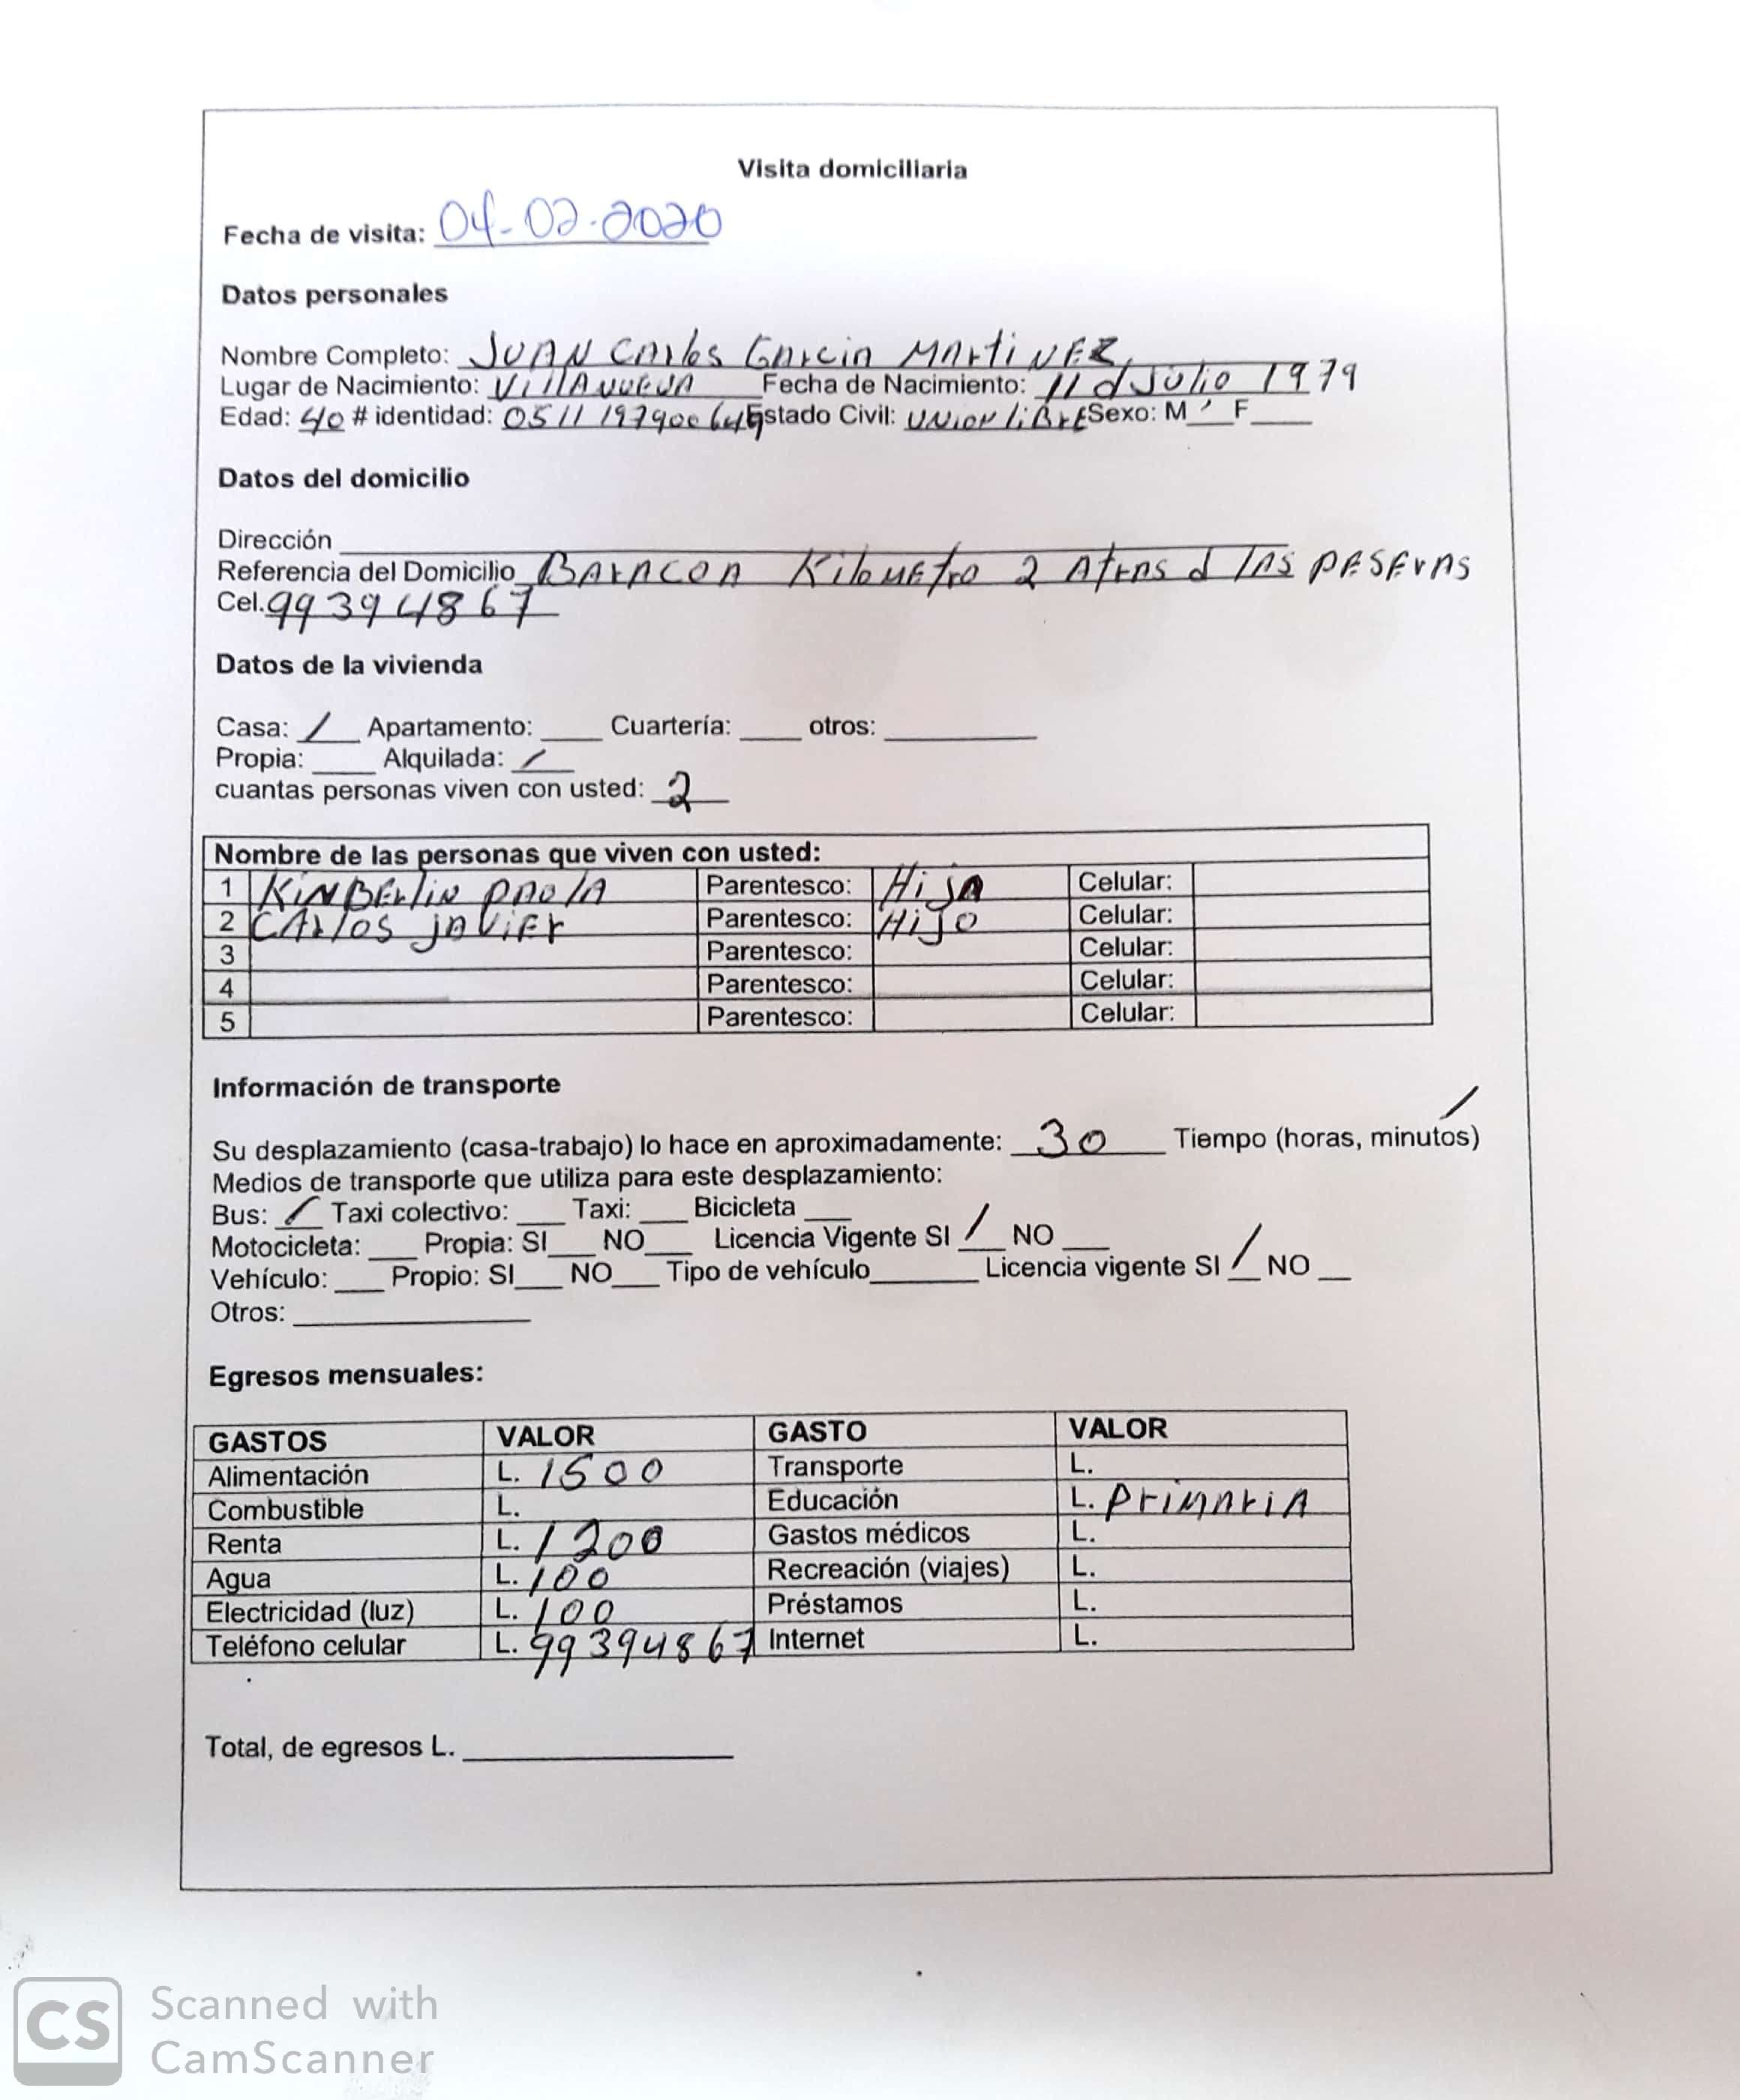 Visita domiciliaria
Fecha de visita: 04-02-2020
Datos personales
Nombre Completo: JUAN CArlos GArcia MArtiNEZ
Lugar de Nacimiento: VillANUEVA Fecha de Nacimiento: 11 d Julio 1979
Edad: 40 # identidad: 0511197900649 Estado Civil: UNion liBrE Sexo: M ✓ F____
Datos del domicilio
Dirección ____
Referencia del Domicilio BArACOA KiloMEtro 2 AtrAS d lAS pESErAS
Cel. 99394867
Datos de la vivienda
Casa: / Apartamento: ____ Cuartería: ____ otros: ____
Propia: ____ Alquilada: /
cuantas personas viven con usted: 2
Nombre de las personas que viven con usted:
1 KiNBErlin pAolA Parentesco: HiJA Celular:
2 CArlos jAViEr Parentesco: HiJO Celular:
3 Parentesco: Celular:
4 Parentesco: Celular:
5 Parentesco: Celular:
Información de transporte
Su desplazamiento (casa-trabajo) lo hace en aproximadamente: 30 Tiempo (horas, minutos) /
Medios de transporte que utiliza para este desplazamiento:
Bus: / Taxi colectivo: ___ Taxi: ___ Bicicleta ___
Motocicleta: ___ Propia: SI___ NO___ Licencia Vigente SI / NO ___
Vehículo: ___ Propio: SI___ NO___ Tipo de vehículo____ Licencia vigente SI / NO __
Otros: ____
Egresos mensuales:
GASTOS VALOR GASTO VALOR
Alimentación L. 1500 Transporte L.
Combustible L. Educación L. primAriA
Renta L. 1200 Gastos médicos L.
Agua L. 100 Recreación (viajes) L.
Electricidad (luz) L. 100 Préstamos L.
Teléfono celular L. 99394867 Internet L.
Total, de egresos L. ____
CS Scanned with
CamScanner